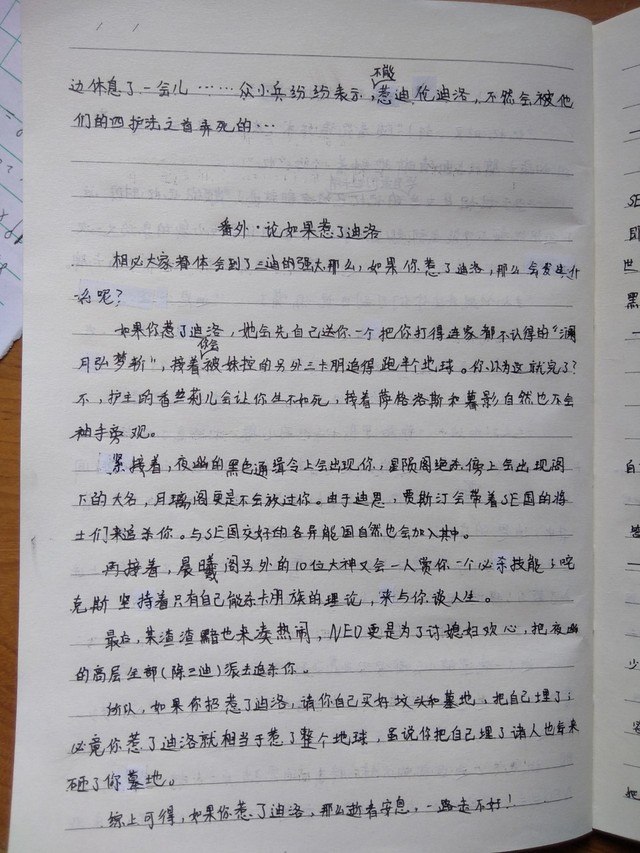 边休息了一会儿……众小兵纷纷表示,不能惹迪伦迪洛,不然会被他
们的四护法之首弄死的…
番外·论如果惹了迪洛
相必大家都体会到了三迪的强大那么,如果你惹了迪洛,那么会发生什
么呢?
如果你惹了迪洛,她会先自己送你一个把你打得连家都不认得的“澜
月弘梦斩”,接着你会被妹控的另外三卡朋追得跑半个地球。你以为这就完了?
不,护主的香兰莉儿会让你生不如死,接着萨格洛斯和暮影自然也不会
袖手旁观。
紧接着,夜幽的黑色通缉令上会出现你,星陨阁绝杀榜上会出现阁
下的大名,月璃阁更是不会放过你。由于迪恩,贾斯汀会带着SE国的将
士们来追杀你。与SE国交好的各异能国自然也会加入其中。
再接着,晨曦阁另外的10位大神又会一人赏你一个必杀技能;咤
克斯坚持着只有自己能杀卡朋族的理论,来与你谈人生。
最后,朱渣渣黯也来凑热闹,NEO更是为了讨媳妇欢心,把夜幽
的高层全部(除三迪)派去追杀你。
所以,如果你招惹了迪洛,请你自己买好坟头和墓地,把自己埋了;
必竟你惹了迪洛就相当于惹了整个地球,虽说你把自己埋了诸人也会来
砸了你墓地。
综上可得,如果你惹了迪洛,那么逝者安息,一路走不好!